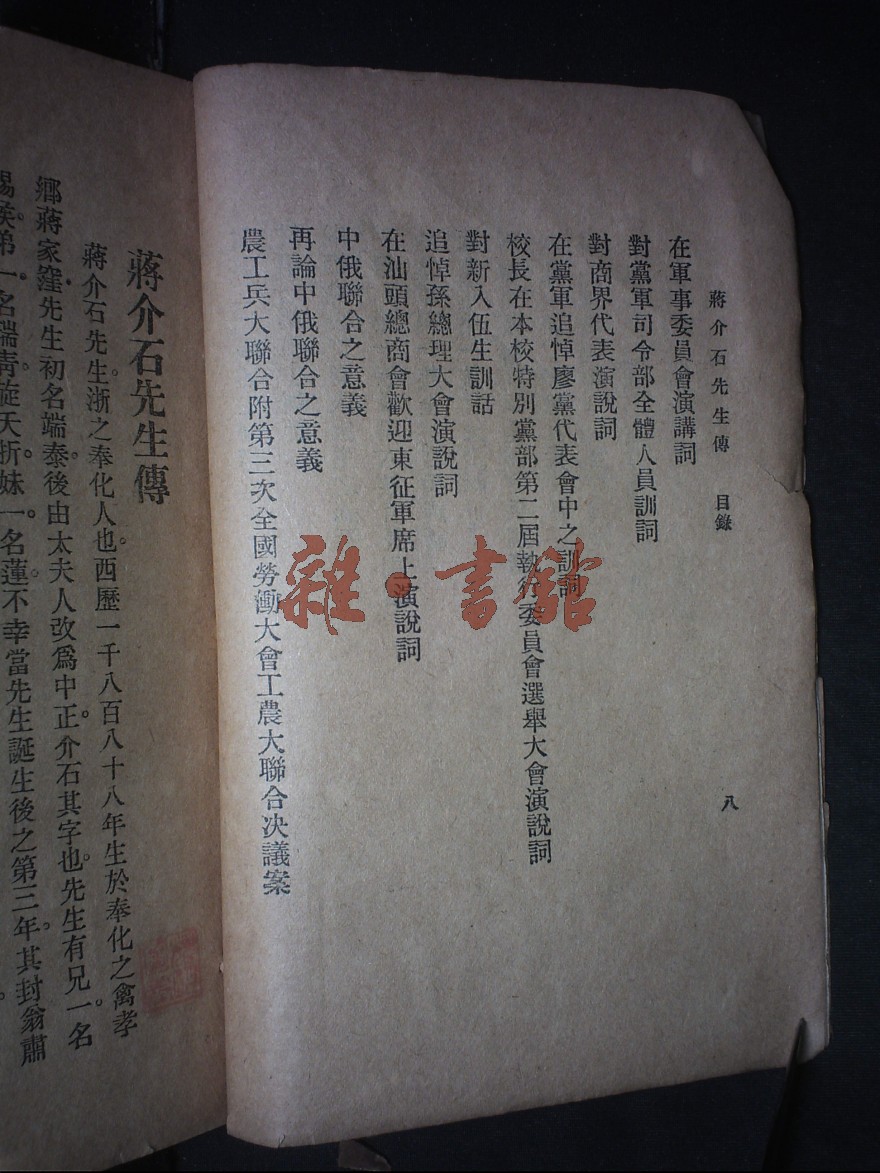 蔣介石先生傳　目錄
八
在軍事委員會演講詞
對黨軍司令部全體人員訓詞
對商界代表演說詞
在黨軍追悼廖黨代表會中之訓詞
校長在本校特別黨部第二屆執行委員會選舉大會演說詞
對新入伍生訓話
追悼孫總理大會演說詞
在汕頭總商會歡迎東征軍席上演說詞
中俄聯合之意義
再論中俄聯合之意義
農工兵大聯合附第三次全國勞働大會工農大聯合决議案
雜·書館
蔣介石先生傳
蔣介石先生。浙之奉化人也。西歷一千八百八十八年生於奉化之禽孝
鄉蔣家窪。先生初名端泰。後由太夫人改爲中正。介石其字也。先生有兄一名
錫侯。弟一名端青。旋夭折。妹一名蓮。不幸當先生誕生後之第三年。其封翁肅